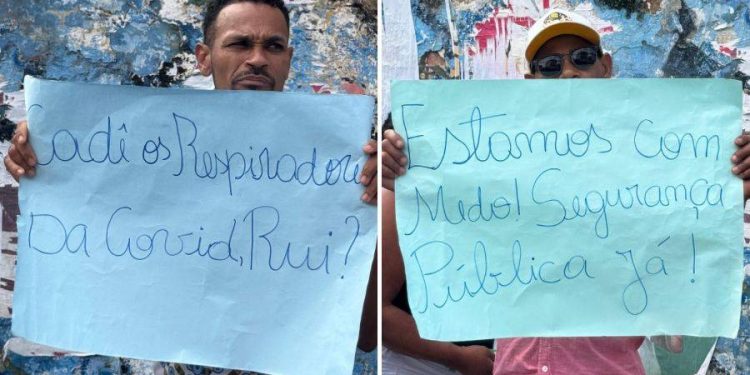 Cadê os Respiradores
Da Covid, Rui?
Estamos com
Medo! Segurança
Pública Já!